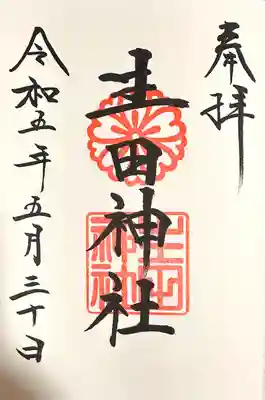 奉拝
生田神社
生田神社
令和五年五月三十日